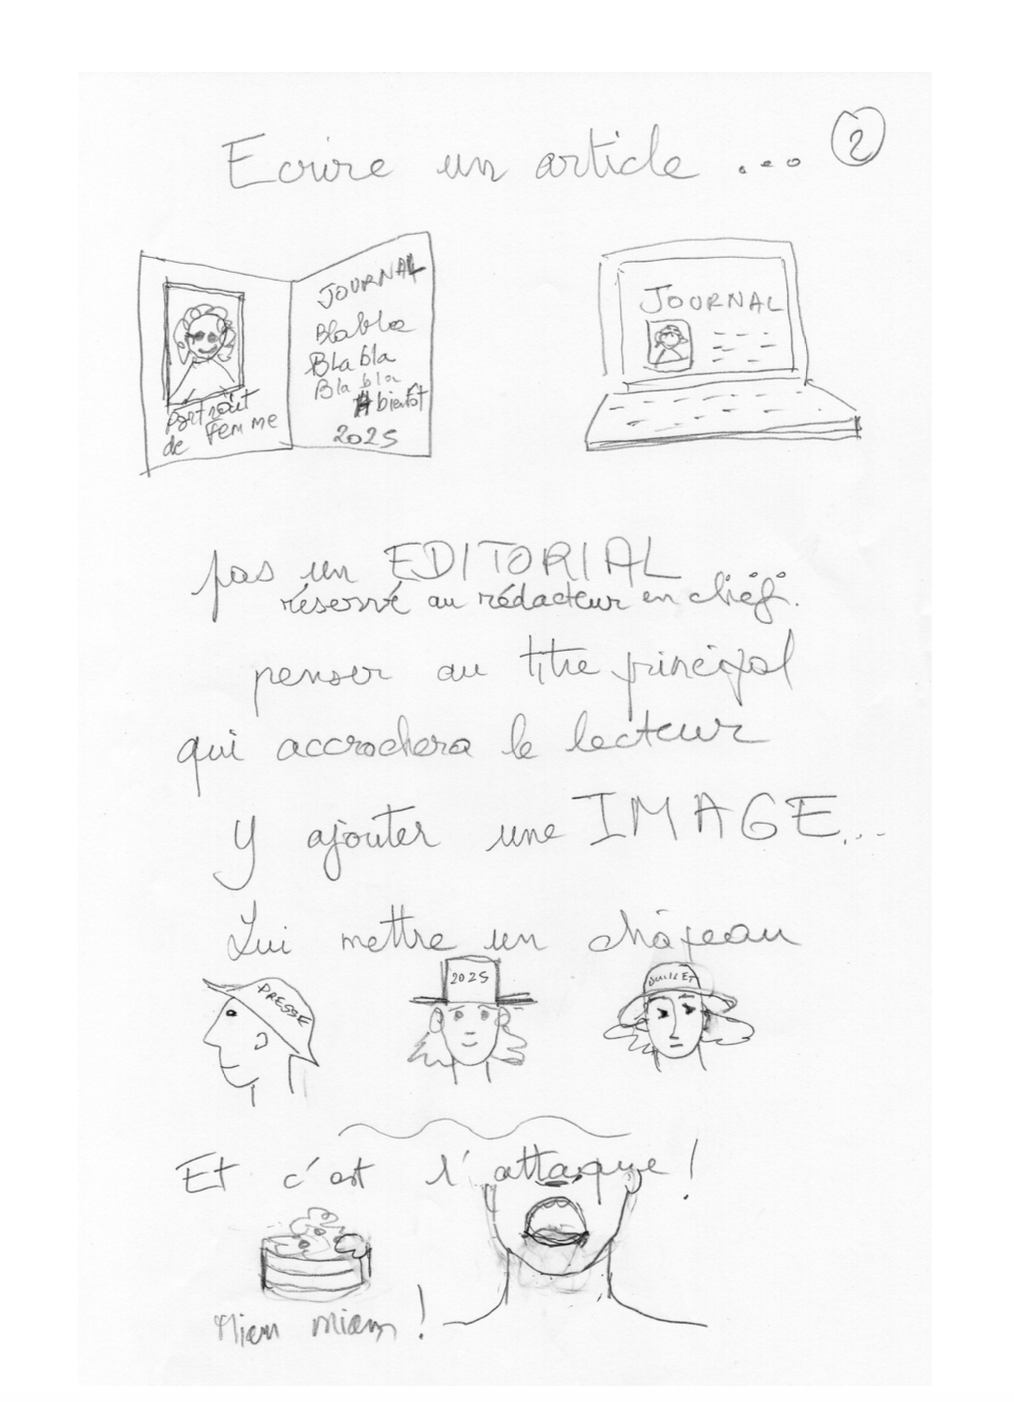 Ecrire un article ...
2
JOURNAL
Blabla
Bla bla
Bla bla
A bientôt
2025
Portrait
de femme
JOURNAL
pas un EDITORIAL
réservé au rédacteur en chef.
penser au titre principal
qui accrochera le lecteur
Y ajouter une IMAGE...
Lui mettre un chapeau
PRESSE
2025
JUILLET
Et c'est l'attaque !
Miam miam !